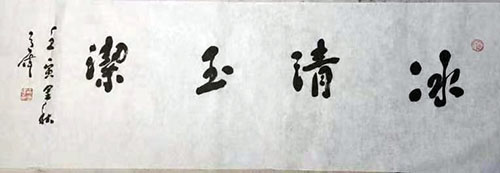 冰清玉潔
壬寅孟秋